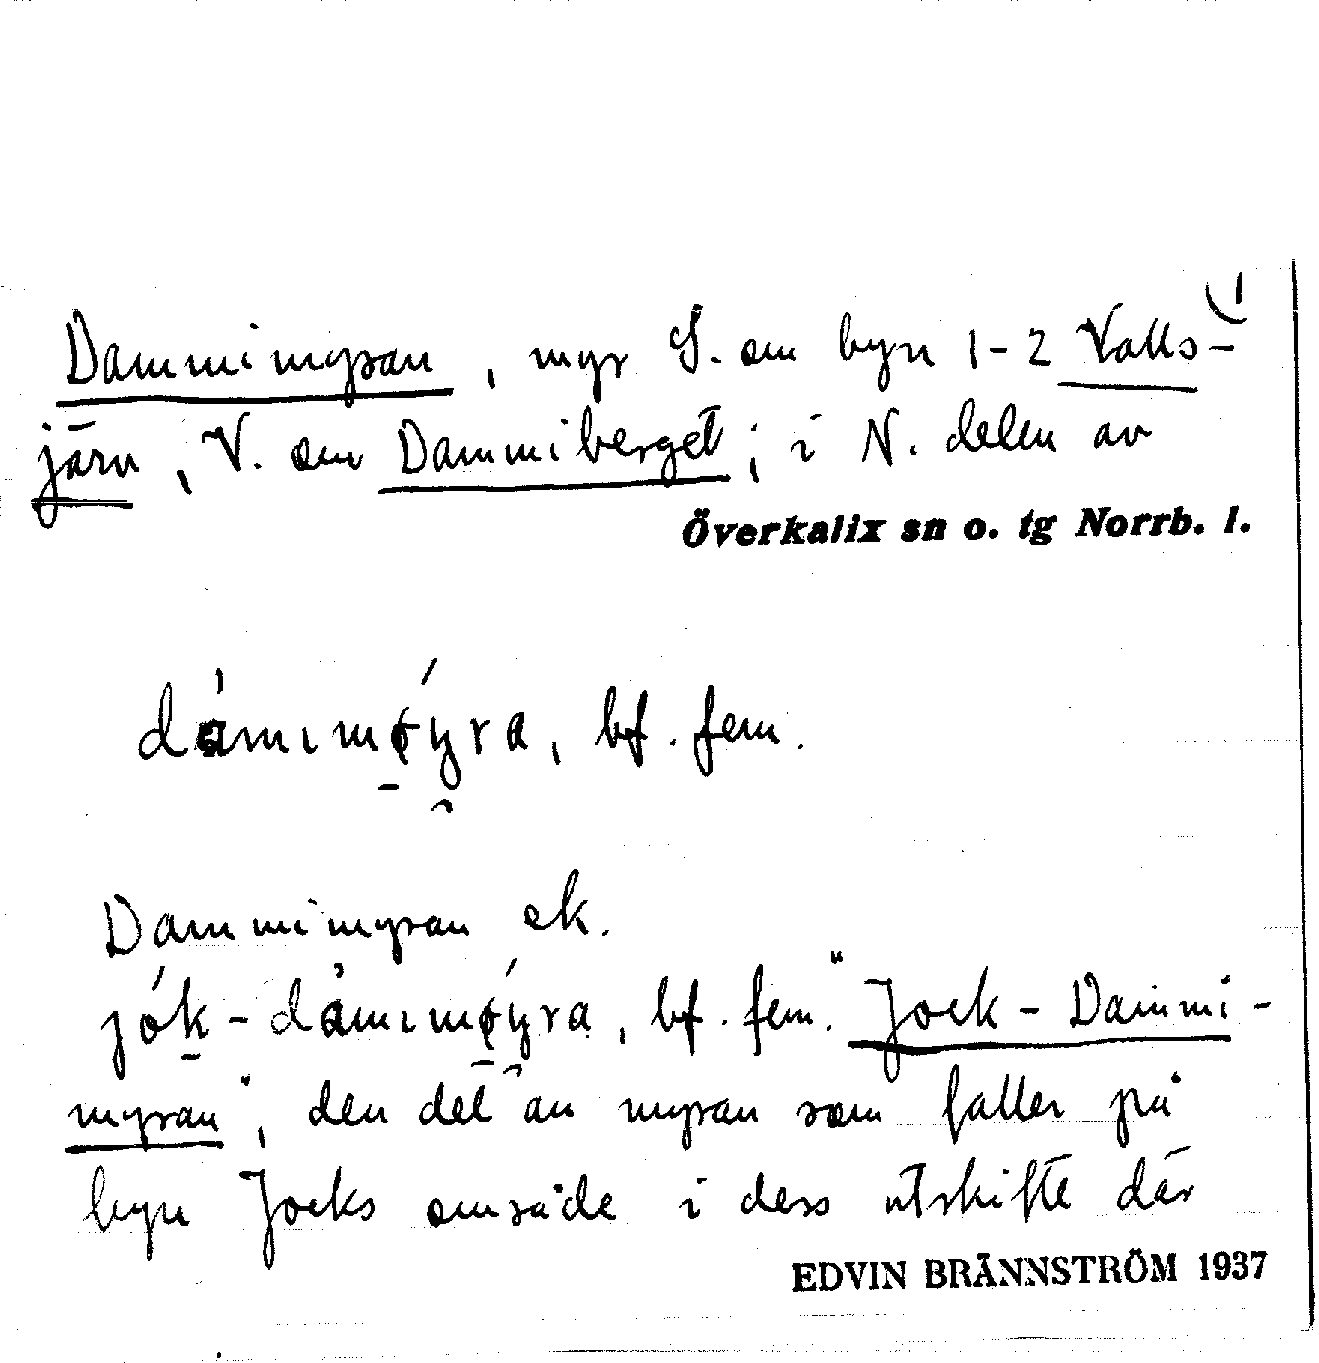 1
Dammimyran, myr S. om byn 1-2 Valls-
järn, V. om Dammiberget; i N. delen av
Överkalix sn o. tg Norrb. l.
bf. fem.
Dammimyran ek.
bf. fem. "Jock-Dammi-
myran", den del av myran som faller på
byn Jocks område i dess utskifte där
EDVIN BRÄNNSTRÖM 1937